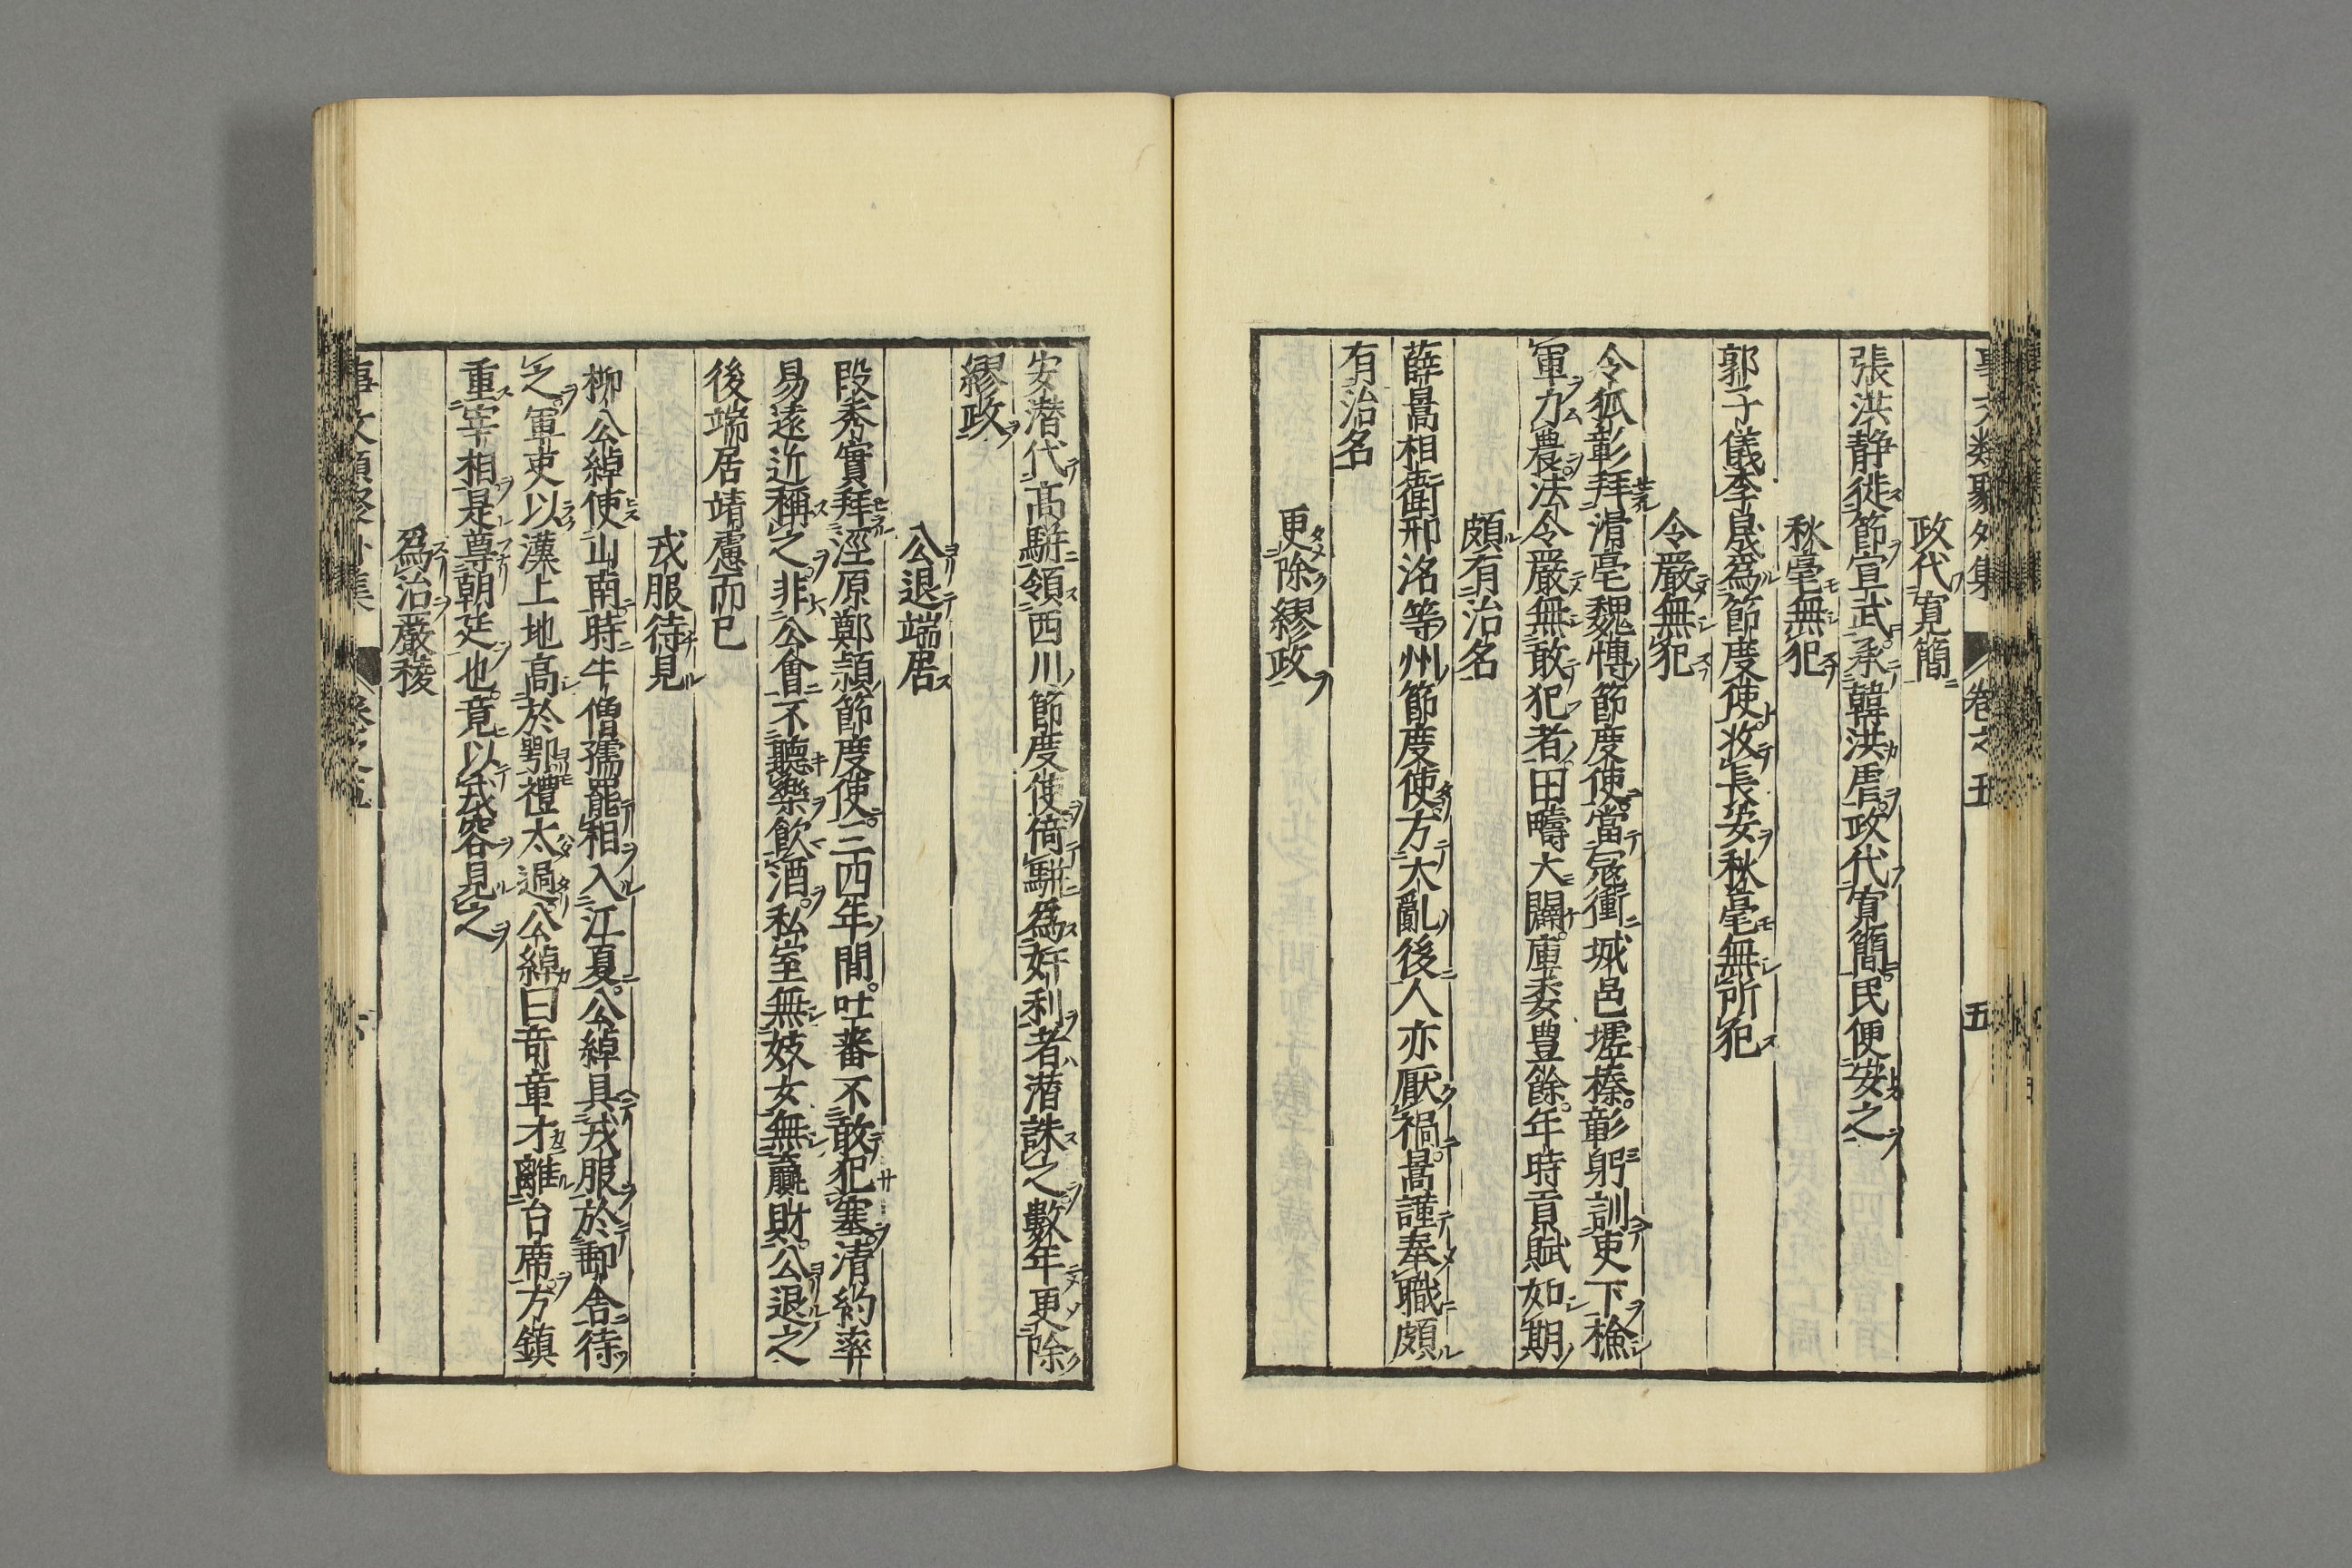 事文類聚外集 卷之五 五
政代寬簡
張洪静徙節宣武承韓洪虐政代寬簡民便安之
秋毫無犯
郭子儀李晟爲節度使收長安秋毫無所犯
令嚴無犯
令狐彰拜滑亳魏博節度使當寇衝城邑墟榛彰躬訓吏下檢
軍力農法令嚴無敢犯者田疇大闢庫委豊餘年時貢賦如期
頗有治名
薛暠相衞邢洺等州節度使方大亂後人亦厭禍暠謹奉職頗
有治名
更除繆政
安潜代高駢領西川節度使倚駢爲奸利者潜誅之數年更除
繆政
公退端居
段秀實拜涇原鄭頴節度使三四年間吐蕃不敢犯塞清約率
易遠近稱之非公會不聽樂飲酒私室無妓女無贏財公退之
後端居靖慮而已
戎服待見
柳公綽使山南時牛僧孺罷相入江夏公綽具戎服於郵舍待
之軍吏以漢上地高於鄂禮太過公綽曰竒章才離台席方鎮
重宰相是尊朝廷也竟以戎容見之
爲治嚴稜
事文類聚外集